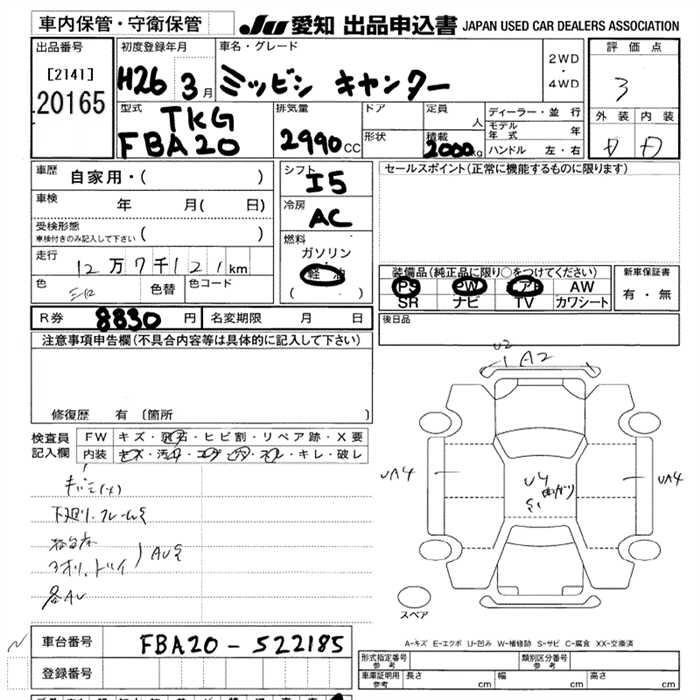 車内保管・守衛保管
JU 愛知 出品申込書 JAPAN USED CAR DEALERS ASSOCIATION
出品番号 初度登録年月 車名・グレード 2WD・4WD 評価点
[2141] 20165 H26 3月 ミツビシ キャンター 3
型式 排気量 ドア 定員 人 ディーラー・並行 外装 内装
TKG 形状 積載 モデル年式 年
FBA20 2990cc 2000kg ハンドル 左・右 D D
車歴 自家用・( ) シフト I5 セールスポイント(正常に機能するものに限ります)
車検 年 月( 日) 冷房 AC
受検形態 ( )
車検付きのみ記入して下さい
燃料 ガソリン・軽油 ( )
走行 12万7千121km
装備品(純正品に限り○をつけてください) 新車保証書
色 色替 色コード PS PW エアB AW 有・無
SR ナビ TV カワシート
R券 8830円 名変期限 月 日 後日品
注意事項申告欄(不具合内容等は具体的に記入して下さい)
U2 A2
修復歴 有 (箇所
検査員記入欄 FW キズ・飛石・ヒビ割・リペア跡・X要
内装 キズ・汚れ・コゲ・穴・スレ・キレ・破レ
UA4 U4 UA4
下廻り、フレームさ
AUさ
各AU
スペア
A-キズ E-エクボ U-凹み W-補修跡 S-サビ C-腐食 XX-交換済
車台番号 FBA20-522185
登録番号
形式指定番号 参考 類別区分番号 参考
車庫証明用 参考 長さ cm 幅 cm 高さ cm